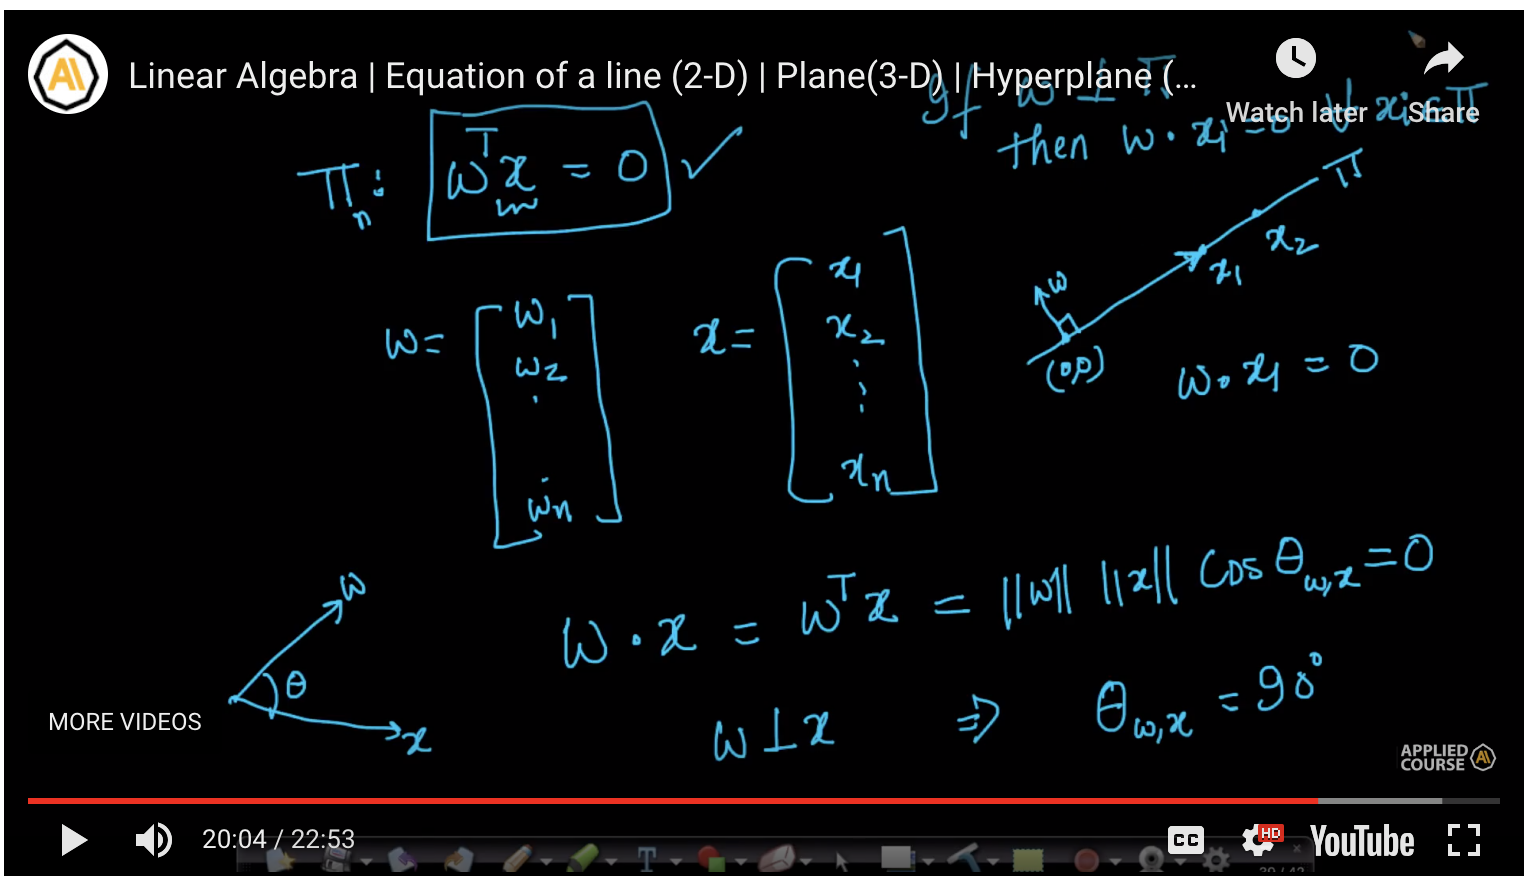 Linear Algebra | Equation of a line (2-D) | Plane(3-D) | Hyperplane (...
Watch later
Share
If w ⊥ π
then w · x₁ = 0 ∀ xᵢ ∈ π
πₙ: wᵀx = 0 ✓
π
x₂
x₁
w
(0,0)
w · x₁ = 0
w = [w₁
w₂
.
.
wₙ]
x = [x₁
x₂
⋮
xₙ]
w
θ
x
w · x = wᵀx = ||w|| ||x|| cos θ w,x = 0
w ⊥ x ⇒ θ w,x = 90°
MORE VIDEOS
APPLIED
COURSE
20:04 / 22:53
CC
HD
YouTube
T